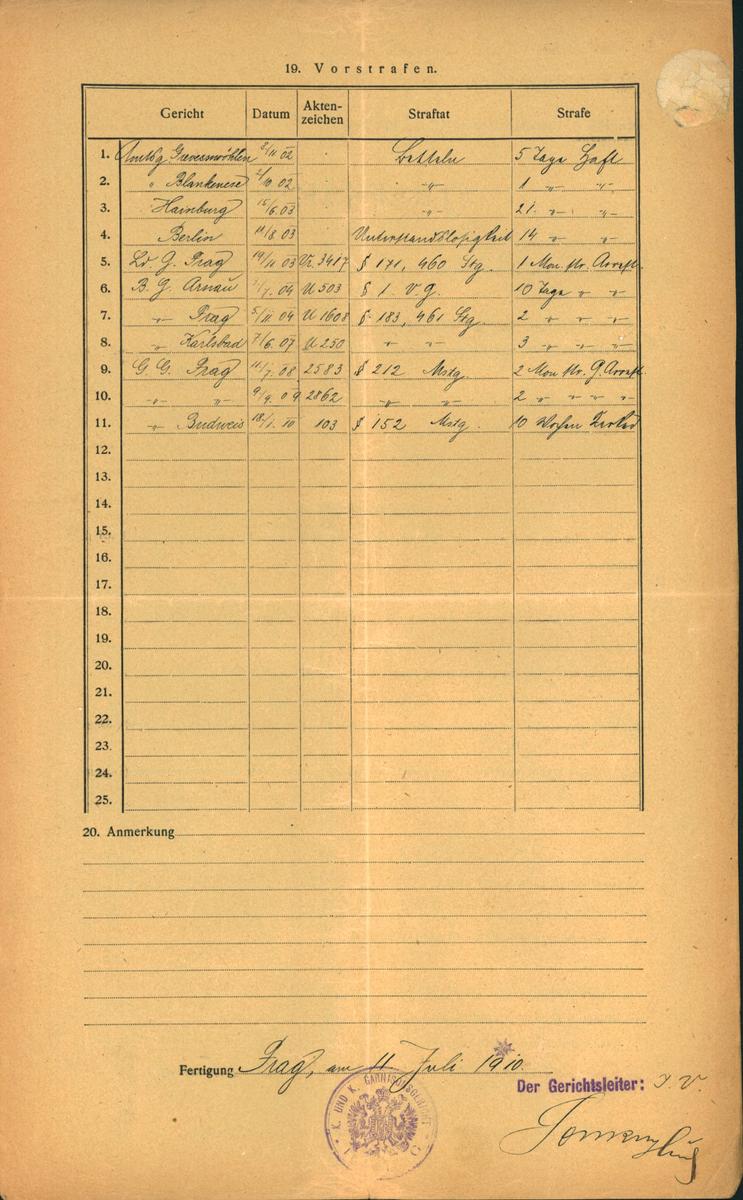 19. Vorstrafen.
Gericht Datum Akten-zeichen Straftat Strafe
1. Amtsg. Grevesmühlen 2/11 02 Betteln 5 Tage Haft
2. " Blankenese /10 02 " 1 " "
3. Hainburg 15/6 03 " 21 " "
4. Berlin 11/8 03 Unterstandslosigkeit 14 " "
5. Ld. G. Prag 19/11 03 Vr. 3417 § 171, 460 Stg. 1 Mon. str. Arrest
6. B. G. Arnau /7 04 U 503 § 1 V. G. 10 Tage " "
7. " Prag 5/11 04 U 1608 § 183, 461 Stg. 2 " " "
8. " Karlsbad 7/6 07 U 250 " " 3 " " "
9. G. G. Prag 11/7 08 2583 § 212 Mstg. 2 Mon. str. G. Arrest
10. " " 9/9 09 2862 " " 2 " " " "
11. " Budweis 18/1 10 103 § 152 Mstg. 10 Wochen Kerker
12.
13.
14.
15.
16.
17.
18.
19.
20.
21.
22.
23.
24.
25.
20. Anmerkung
Fertigung Prag, am 11 Juli 1910.
Der Gerichtsleiter: I. V.
K. UND K. GARNISONSGERICHT